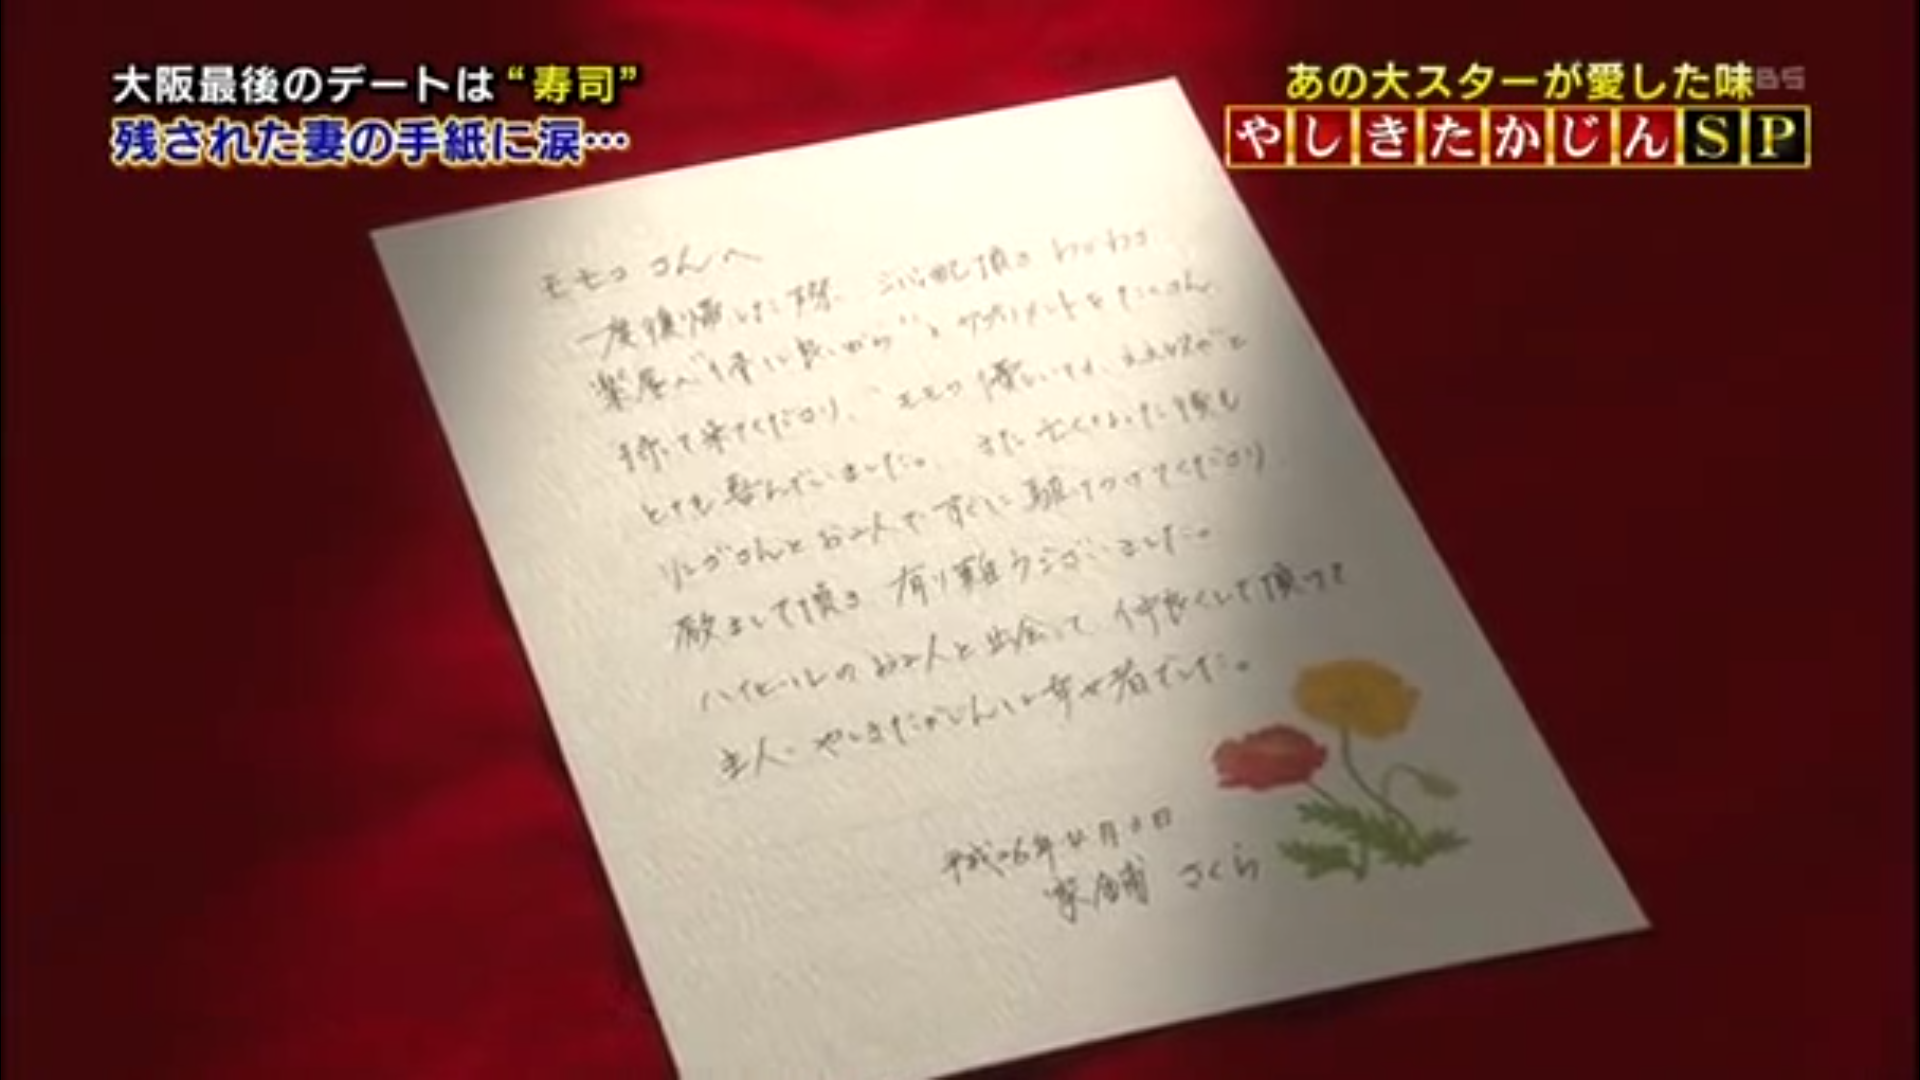 大阪最後のデートは“寿司”
残された妻の手紙に涙…
あの大スターが愛した味
BS
やしきたかじんSP
モモコさんへ
一度復帰した際、ご心配頂き わざわざ
楽屋へ“体に良いから”と サプリメントをたくさん
持って来てくださり、“モモコ優しいなぁ、ええ奴や”と
とても喜んでいました。 また、亡くなった後も
リンゴさんとお2人で すぐに駆けつけてくださり
励まして頂き 有り難うございました。
ハイヒールのお2人と出会って、仲良くして頂って
主人・やしきたかじんは幸せ者でした。
平成26年 月 日
家鋪 さくら